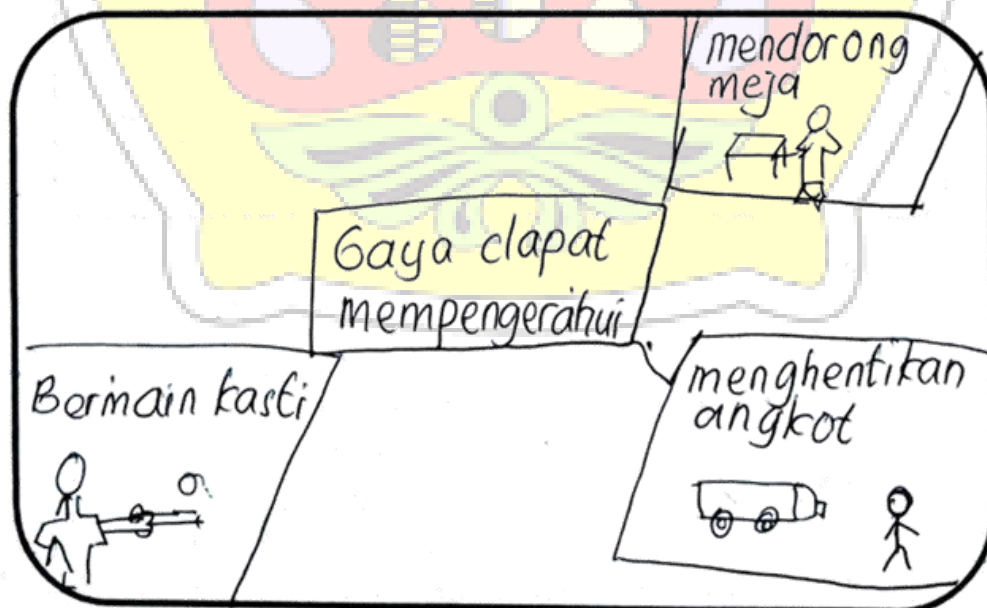 mendorong
meja
Gaya clapat
mempengerahui
Bermain kasti
menghentikan
angkot